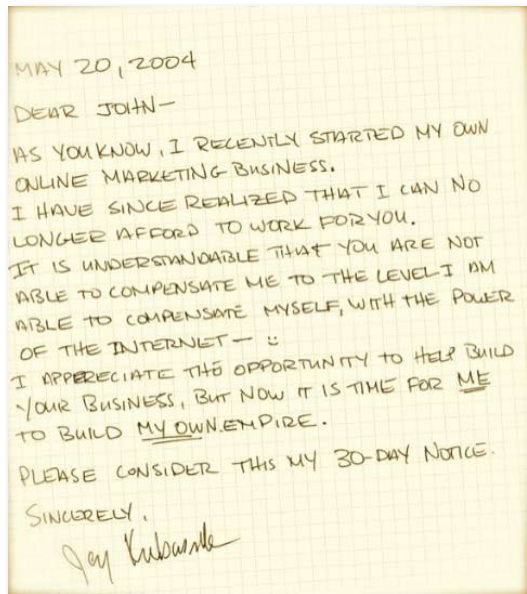 MAY 20, 2004
DEAR JOHN—
AS YOU KNOW, I RECENTLY STARTED MY OWN
ONLINE MARKETING BUSINESS.
I HAVE SINCE REALIZED THAT I CAN NO
LONGER AFFORD TO WORK FOR YOU.
IT IS UNDERSTANDABLE THAT YOU ARE NOT
ABLE TO COMPENSATE ME TO THE LEVEL I AM
ABLE TO COMPENSATE MYSELF, WITH THE POWER
OF THE INTERNET— :)
I APPERECIATE THE OPPORTUNITY TO HELP BUILD
YOUR BUSINESS, BUT NOW IT IS TIME FOR ME
TO BUILD MY OWN EMPIRE.
PLEASE CONSIDER THIS MY 30-DAY NOTICE.
SINCERELY,
Jay